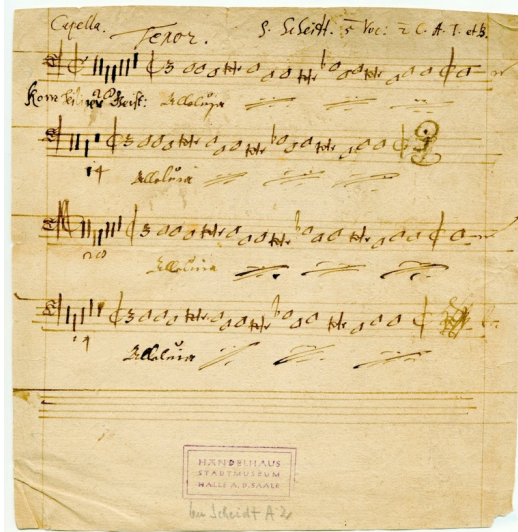 Capella. Tenor. S. Scheidt. 5 Voc: 2 C. A. T. et B.
Kom heiliger Geist: Alleluia
14
Alleluia
Alleluia
Alleluia
HÄNDELHAUS
STADTMUSEUM
HALLE A. D. SAALE
Scheidt A 2